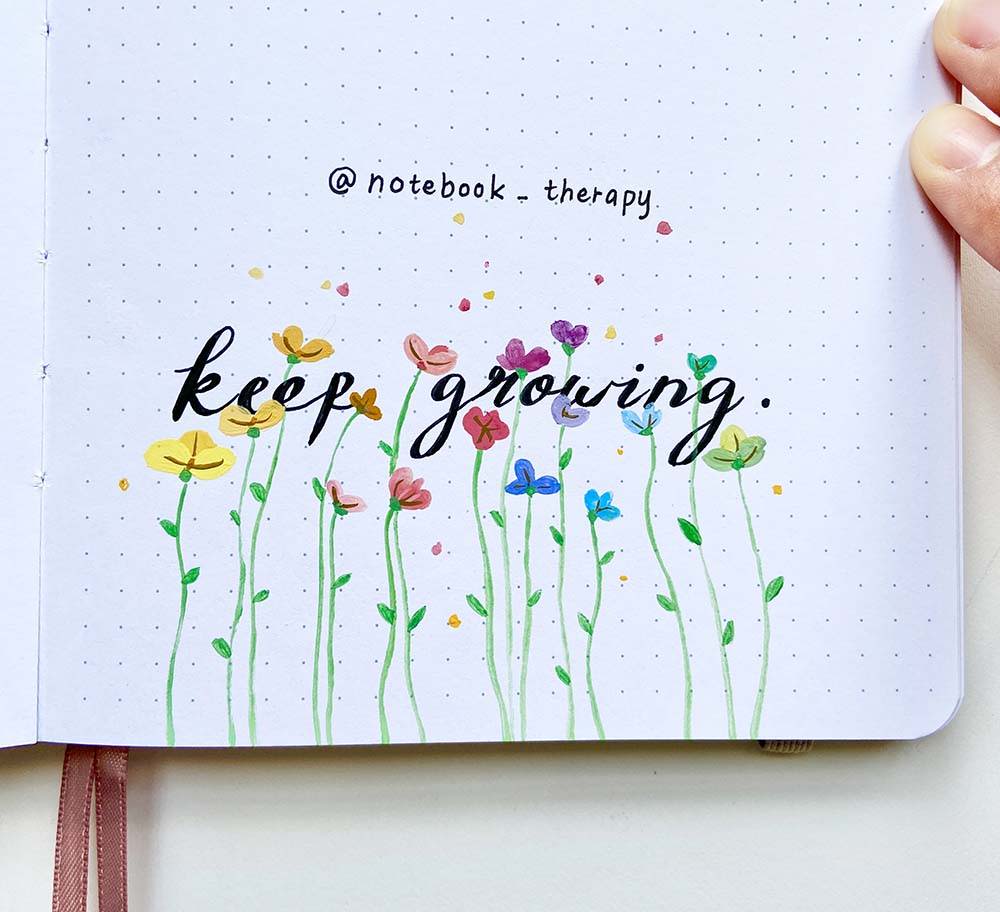 @notebook_therapy
keep growing.